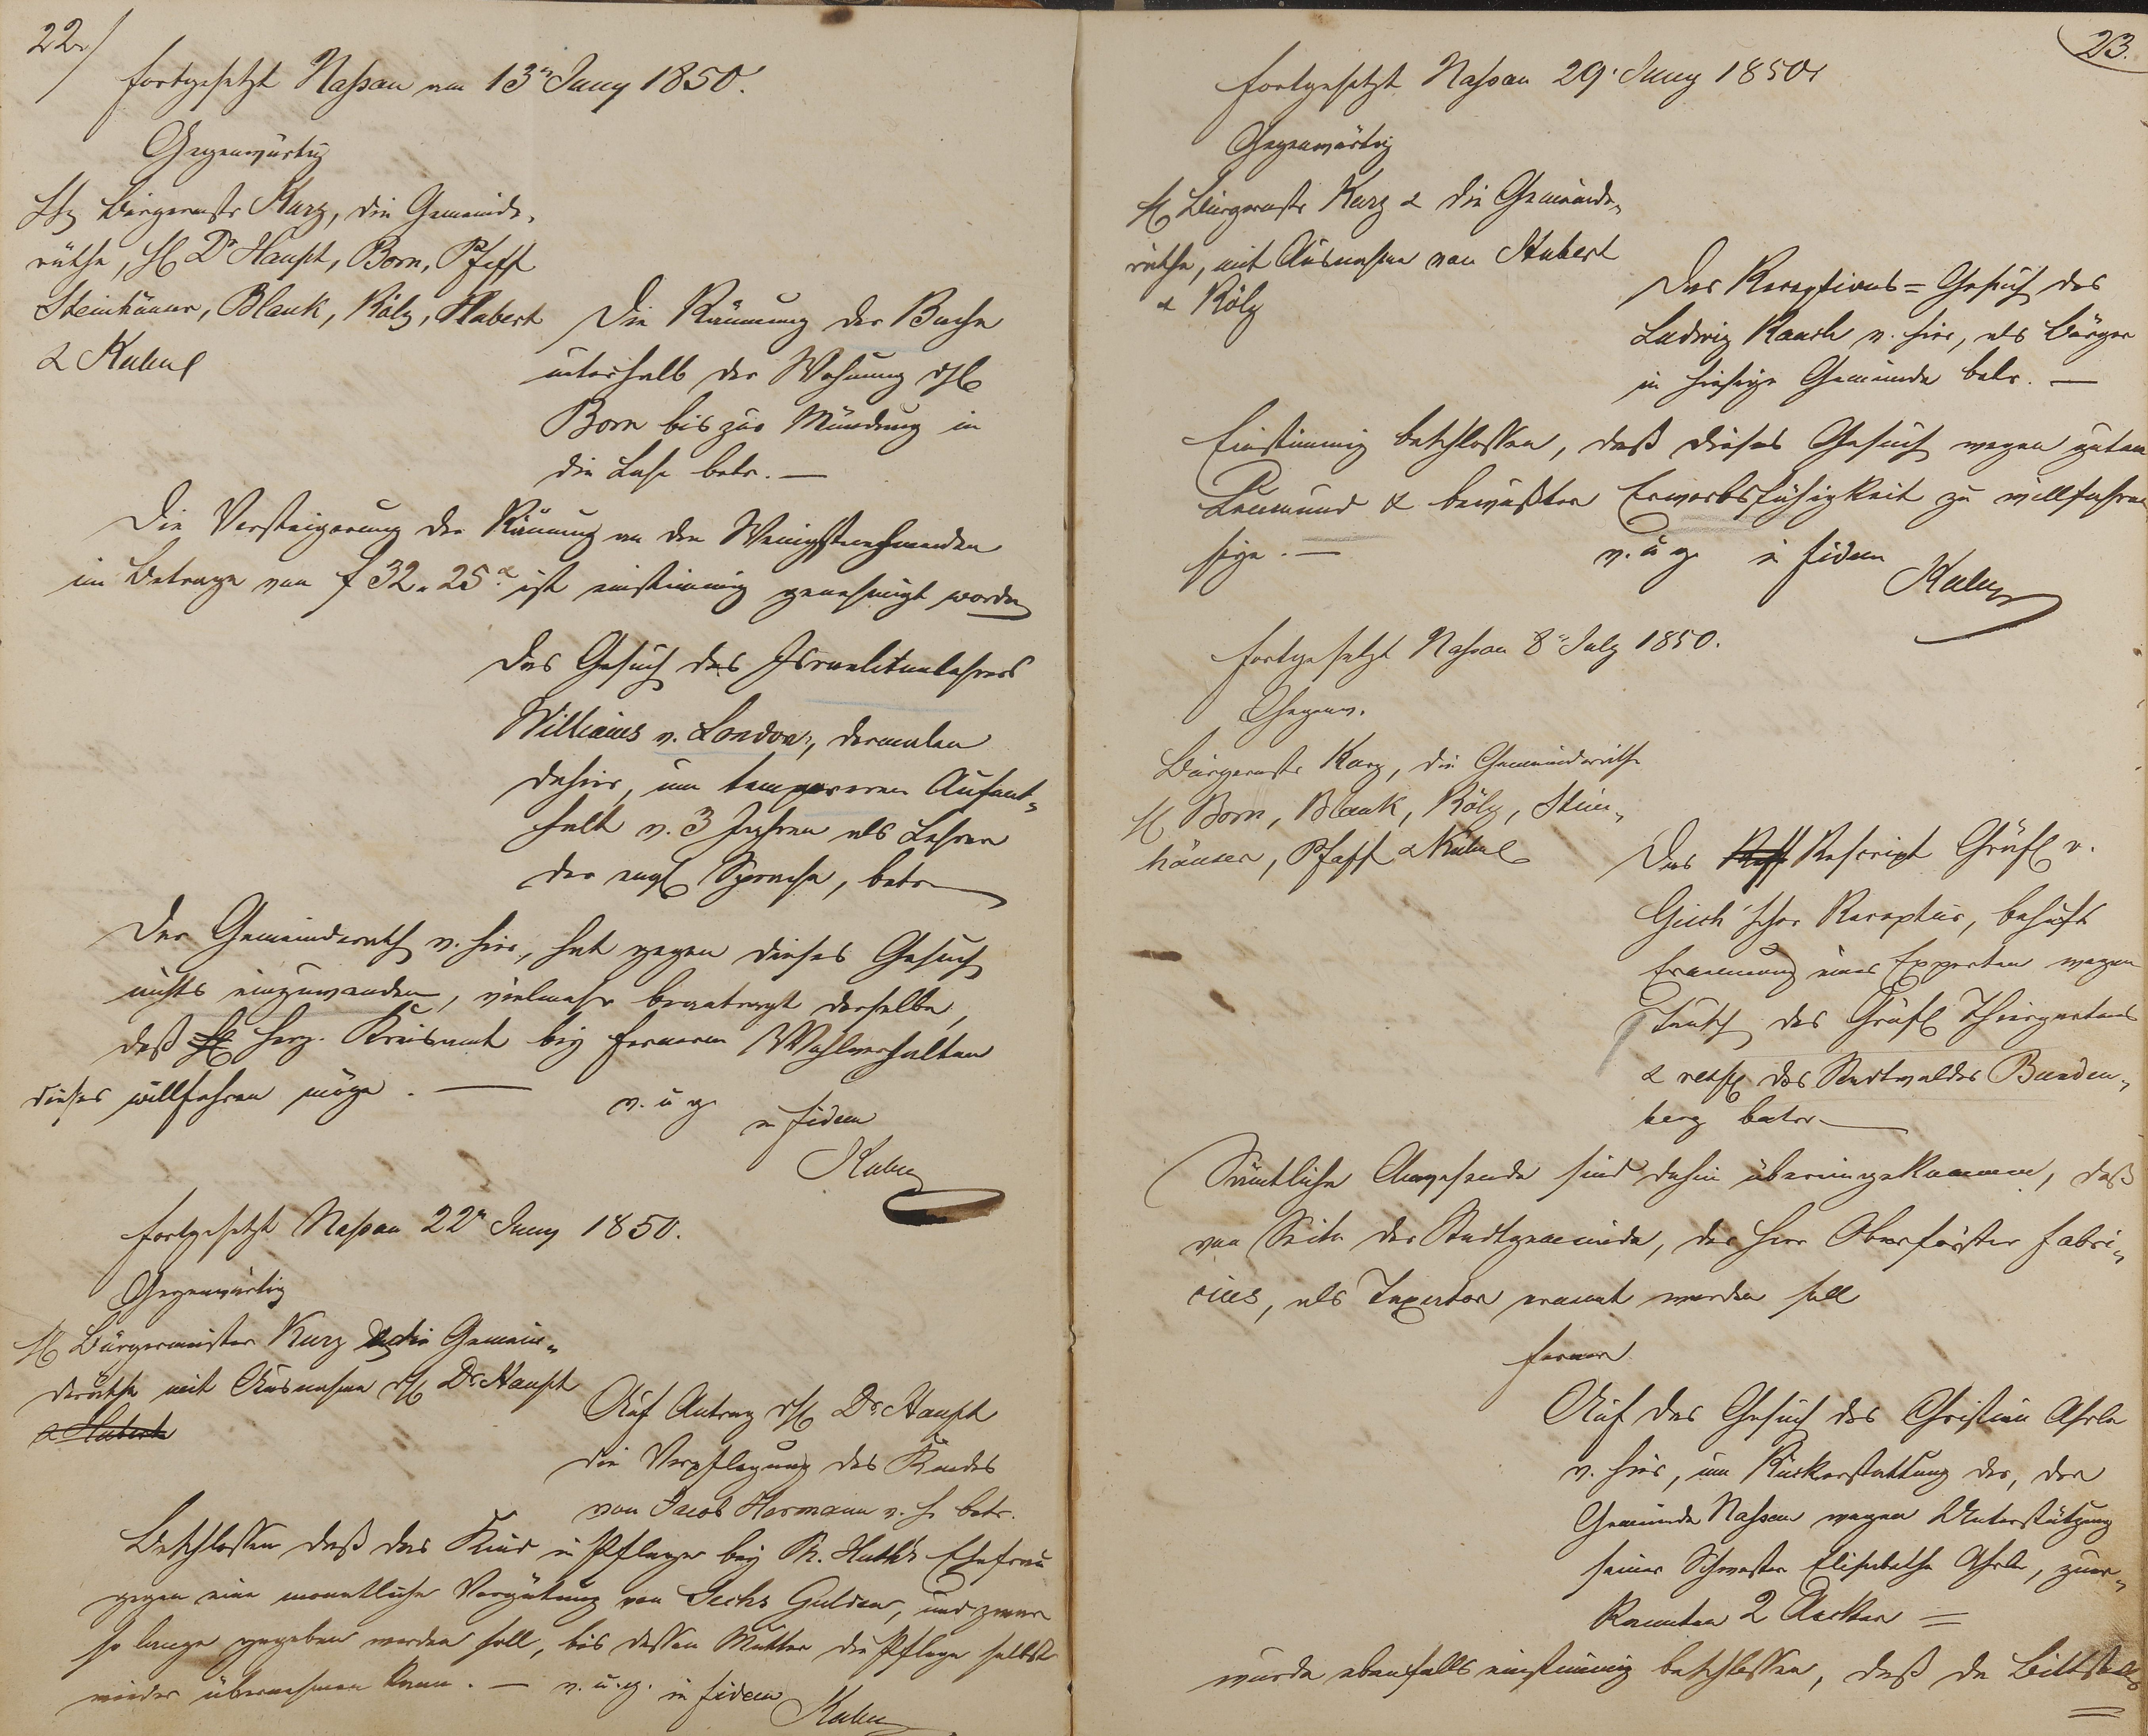 22./
fortgesetzt Naßau am 13n Juny 1850.
Gegenwärtig
Hr. Bürgermstr Kurz, die Gemeinde,
räthe, H. Dr Haupt, Born, Pfaff
Steinhäuser, Blank, Kölz, Hubert
& Kuhn
Die Räumung der Bache
unterhalb der Wohnung d. H.
Born bis zur Mündung in
die Lahn betr. —
Die Versteigerung der Räumung an den Wenigstnehmenden
im Betrage von f 32. 25 x ist einstimmig genehmigt worden
Das Gesuch des Israelitenlehrers
Williams v. London, dermalen
dahier, um temporeren Aufent„
halt v. 3 Jahren als Lehrer
der engl Sprache, betr
Der Gemeinderath v. hier, hat gegen dieses Gesuch
nichts einzuwenden, vielmehr beantragt derselbe,
daß Herz. Kreisamt bey fernerem Wohlverhalten
dieses willfahren möge. —
v. u g. in fidem
Kuhn
fortgesetzt Naßau 22n Juny 1850.
Gegenwärtig
H. Bürgermeister Kurz & die Gemein„
deräthe mit Ausnahme d. H. Dr Haupt
& Hubert
Auf Antrag d. H. Dr. Haupt
die Verpflegung des Kindes
von Jacob Hermann v. h. betr.
Beschlossen daß das Kind in Pflege bey Ehefrau
gegen eine monatliche Vergütung von Sechs Gulden, und zwar
so lange gegeben werden soll, bis dessen Mutter die Pflege selbst
wieder übernehmen kann. — v. u. g. in fidem
Kuhn
23.
fortgesetzt Naßau 29. Juny 1850
Gegenwärtig
H Bürgermstr Kurz & die Gemeinde„
räthe, mit Ausnahme von Hubert
& Kölz
Das Receptions= Gesuch des
Ludwig Rauch v. hier, als Bürger
in hiesige Gemeinde betr. —
Einstimmig beschlossen, daß dieses Gesuch wegen gutem
Leumund & bewußter Erwerbsfähigkeit zu willfahren
seye. —
v. u g. in fidem
Kuhn
fortgesetzt Naßau 8n July 1850.
Gegenw.
Bürgermstr Kurz, die Gemeinderäthe
H Born, Blank, Kölz, Stein„
häuser, Pfaff & Kuhn
Das Rescript Gräfl v.
Giech'scher Receptur, behufs
Ernennung eines Experten wegen
Tausch des Gräfl Thiergartens
& resp des Stadtwaldes
berg betr
Sämtliche Anwesende sind dahin übereingekommen, daß
von Seite der Stadtgemeinde, der Herr Oberförster Fabri„
cius, als Taxator ernannt werden soll
ferner
Auf das Gesuch des Christian
v. hier, um Rückerstattung der, der
Gemeinde Naßau wegen Unterstützung
seiner Schwester Elisabetha, zuer„
kannten 2 Aecker =
wurde ebenfalls einstimmig beschlossen, daß de Bittstell